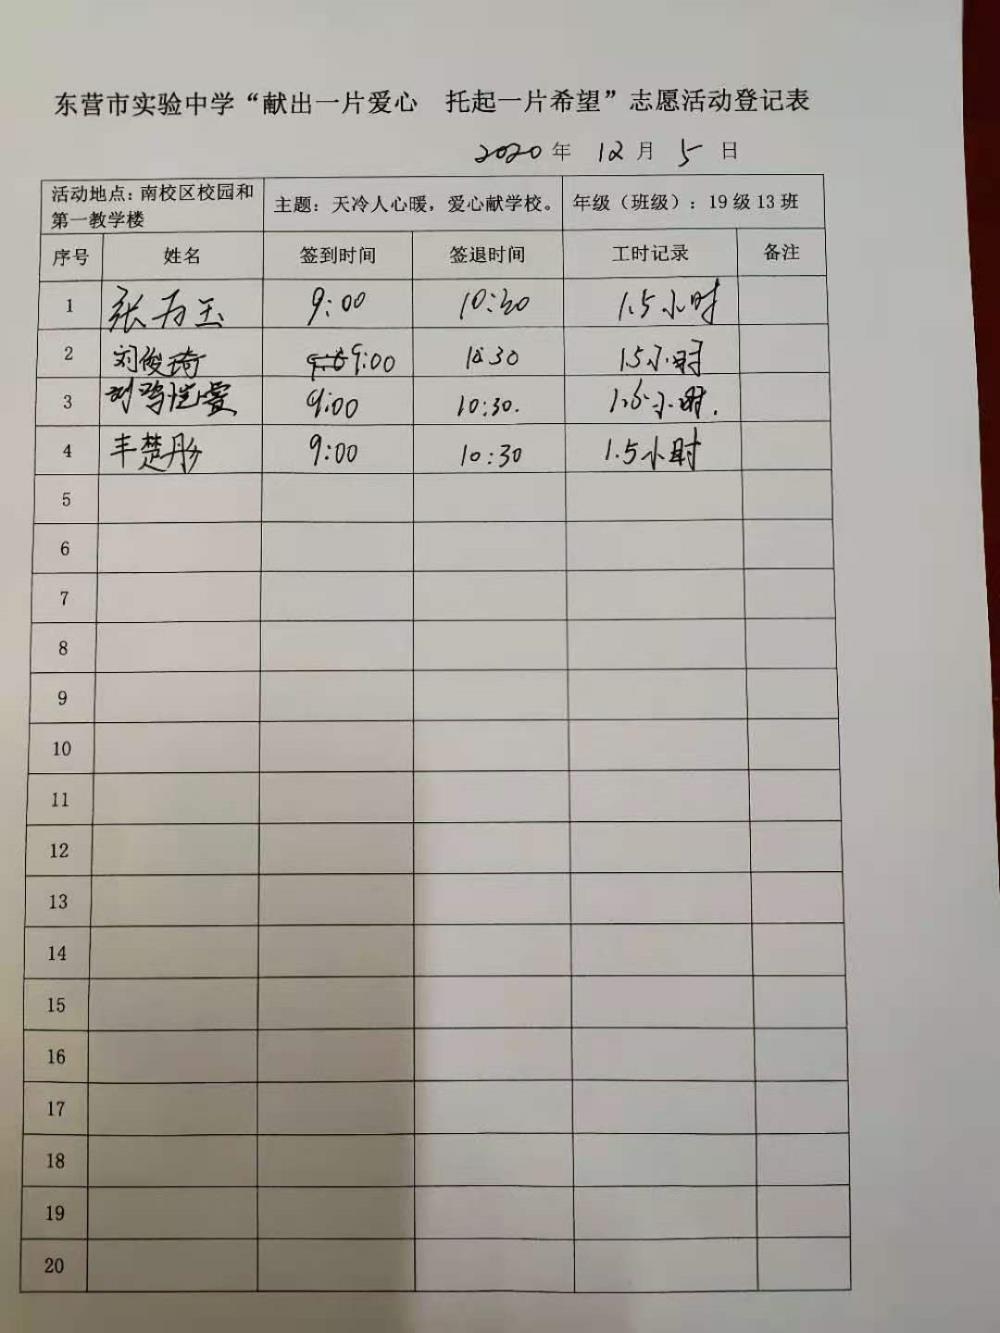 东营市实验中学“献出一片爱心 托起一片希望”志愿活动登记表
2020 年 12 月 5 日
活动地点：南校区校园和第一教学楼 主题：天冷人心暖，爱心献学校。 年级（班级）：19 级 13 班
序号 姓名 签到时间 签退时间 工时记录 备注
1 张万玉 9:00 10:30 1.5小时
2 刘俊琦 9:00 10:30 1.5小时
3 9:00 10:30. 1.5小时.
4 丰楚彤 9:00 10:30 1.5小时
5
6
7
8
9
10
11
12
13
14
15
16
17
18
19
20